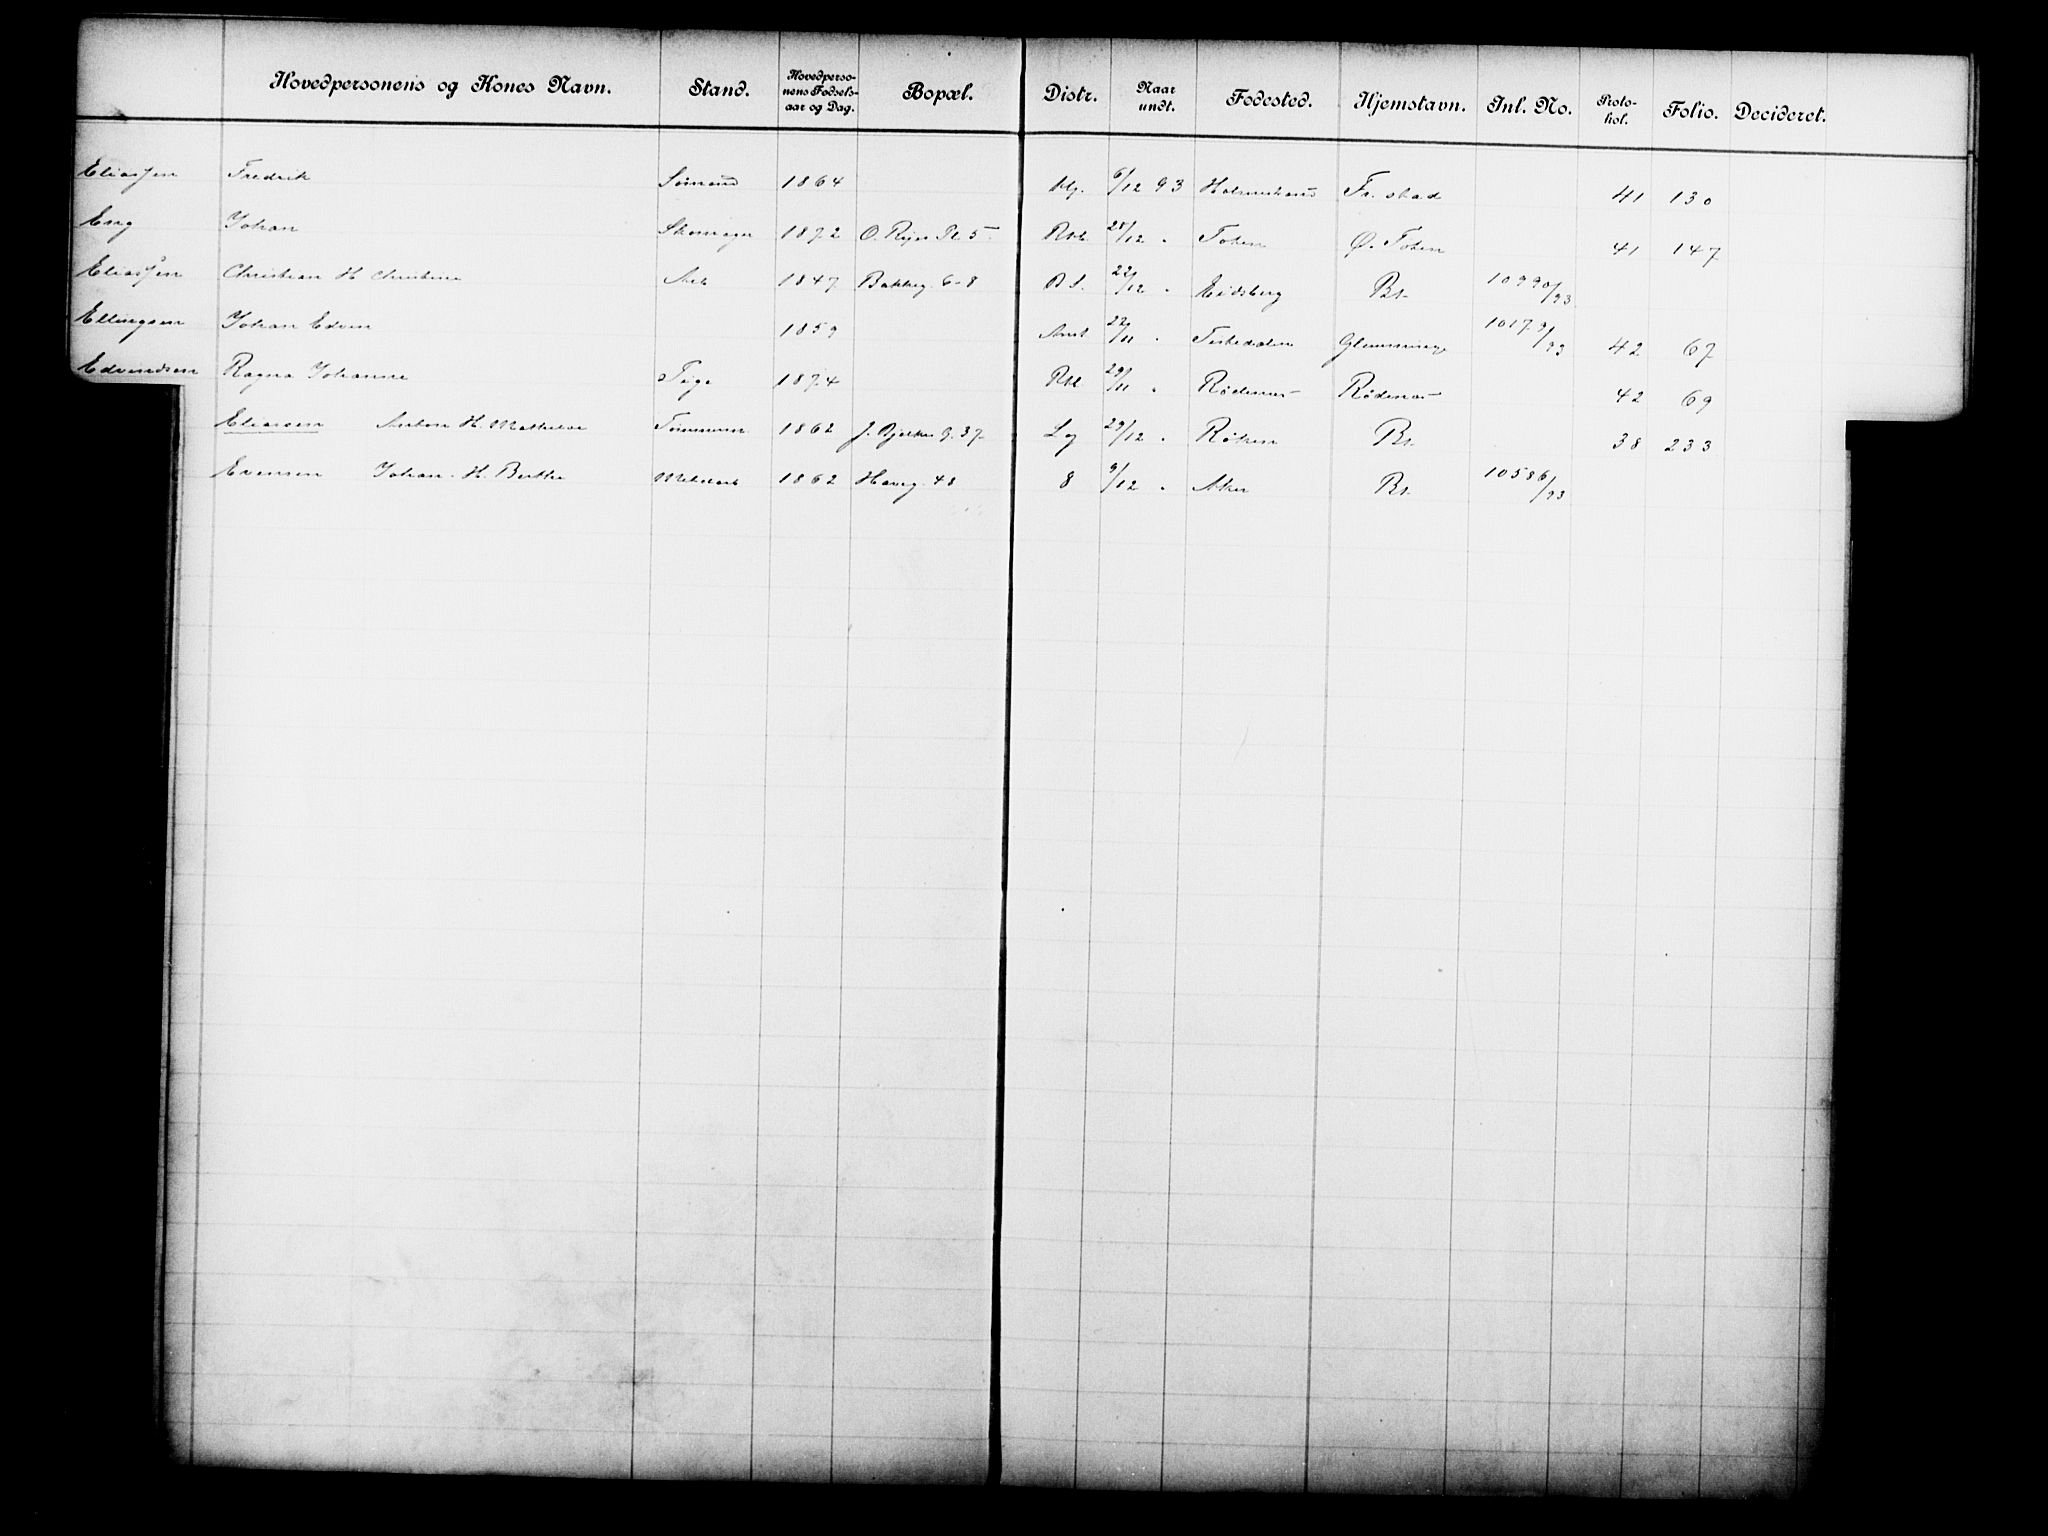 Hovedpersonens og Kones Navn. Stand. Hovedpersonens Fødselsaar og Dag. Bopæl. Distr. Naar undt. Fødested. Hjemstavn. Inl. No. Protokol. Folio. Decideret.
Eliassen Fredrik Sømand 1864 6/12 93 Holmestrand Fr. stad 41 130
Eng Johan Skomager 1872 O. Ryes Pl 5 /12 Toten Ø. Toten 41 147
Eliassen Christian H Christine Arb 1847 Bakkeg. 6-8 22/12 Eidsberg By. 10990/93
Ellingsen Johan Edvin 1859 22/11 Glemminge 1017 /93 42 67
Edvardsen Ragna Johanne Pige 1874 29/11 Rødenes Rødenes 42 69
Eliassen Anton H. Mathilde Tømmerm 1862 37 Lg 29/12 Røken By. 38 233
Evensen Johan H. Berthe 1862 Havg. 48 8 9/12 Aker By. 10586/93